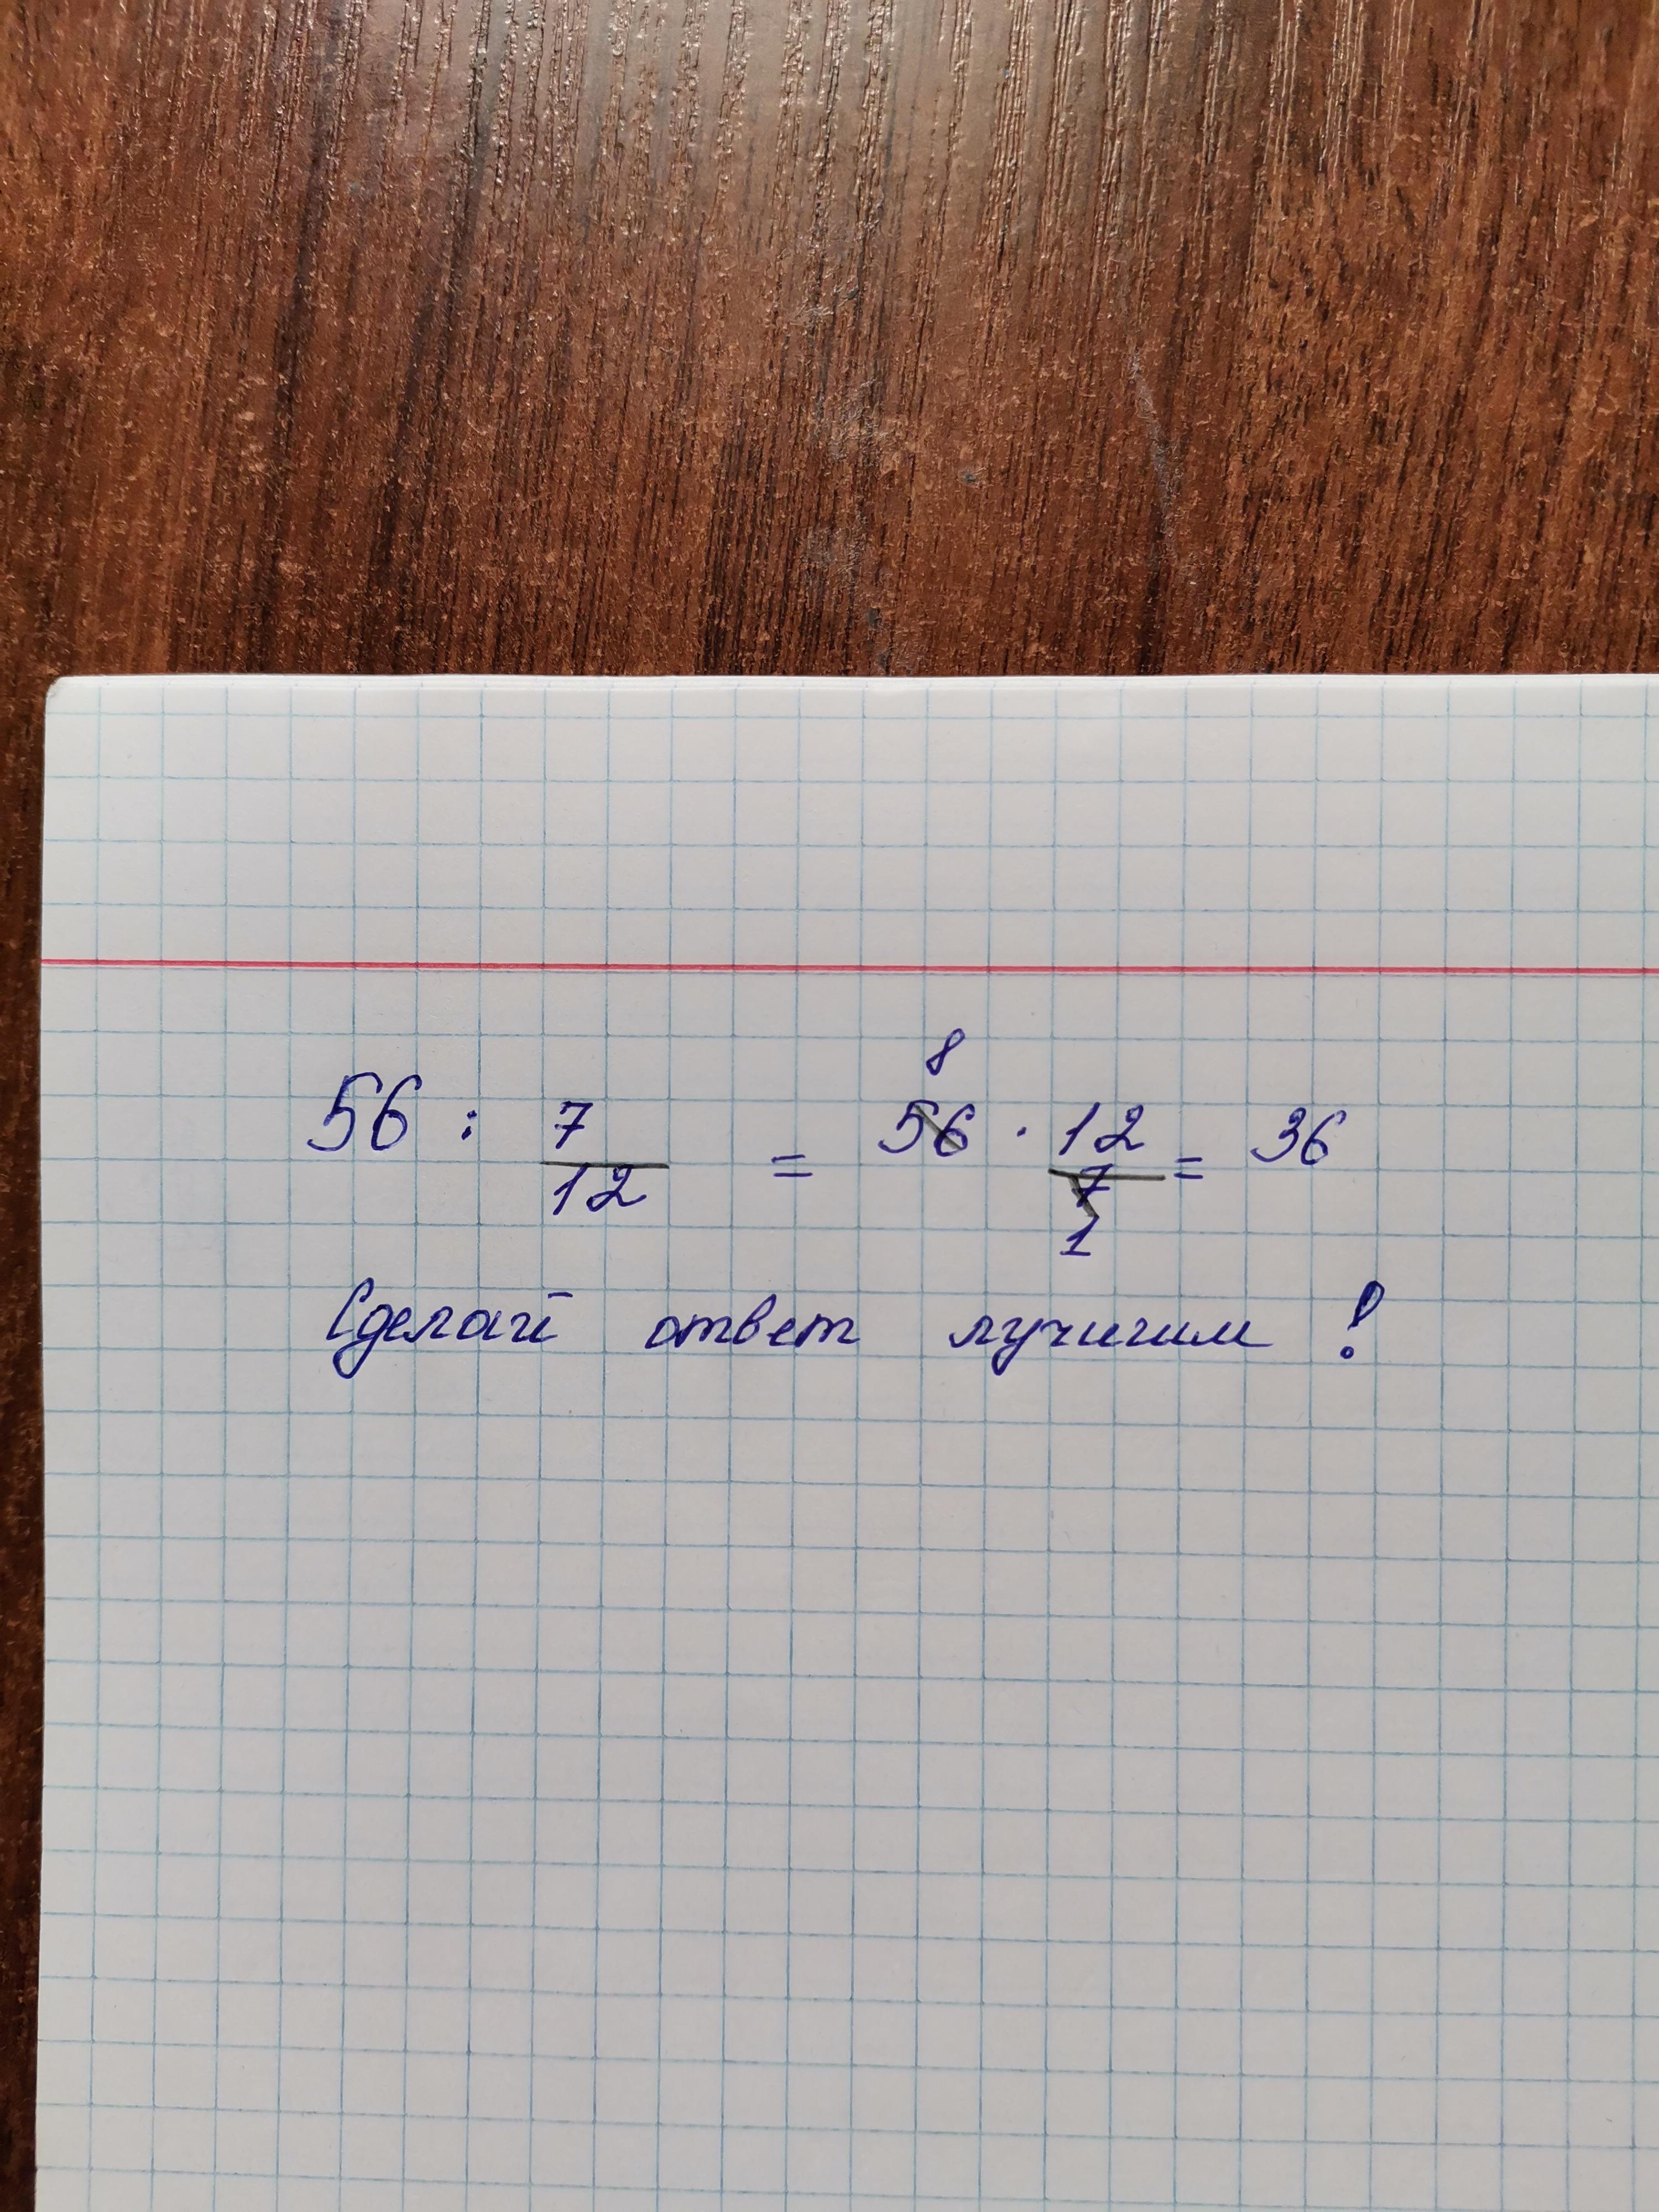 56 : 7/12 = 56 8 · 12/7 1 = 36
Сделай ответ лучшим !